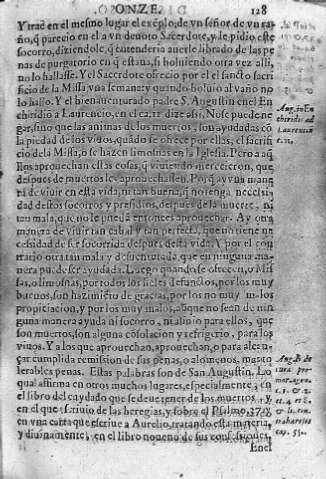 ONZE. 128
Y trae en el mesmo lugar el exēplo, de vn señor de vn ba-
ño, q̄ parecio en el a vn deuoto Sacerdote, y le pidio este
socorro, diziendole, q̄ entenderia auerle librado de las pe-
nas de purgatorio en q̄ estaua, si boluiendo otra vez alli,
no lo hallasse. Y el Sacerdote ofrecio por el el sancto sacri
ficio de la Missa vna semana: y quando boluio al vaño no
lo hallo. Y el bienauenturado padre S. Augustin en el En
chiridio a Laurencio, en el ca. dize assi. No se puede ne
gar, sino que las animas de los muertos, son ayudadas cō
la piedad de los viuos, quādo se ofrece por ellas, el sacrifi
cio de la Missa, o se hazen limosnas en la Iglesia. Pero a aq̄
llos aprouechan estas cosas, q̄ viuiendo merecieron, que
despues de muertos les aprouechassen. Porq̄ ay vna mane
ra de viuir en esta vida, ni tan buena, q̄ no tenga necessi-
dad destos socorros y presidios, despues de la muerte, ni
tan mala, que no le pueda entonces aprouechar. Ay otra
manera de viuir tan cabal y tan perfecta, que no tiene ne
cesidad de ser socorrida despues desta vida. Y por el con-
trario otra tan mala y desuenturada, que en ninguna ma-
nera puede ser ayudada. Luego quando se ofrecen, o Mis
sas, o limosnas, por todos los fieles defunctos, por los muy
buenos, son hazimiēto de gracias, por los no muy malos
propiciacion, y por los muy malos, aūque no sean de nin
guna manera ayuda ni socorro, ni aliuio para ellos, que
son muertos, son alguna cōsolacion y refrigerio, para los
viuos. Y a los que aprouechan, aprouechan, o para alcan-
çar cumplida remission de sus penas, o alomenos, mas to
lerables penas. Estas palabras son de San Augustin. Lo
qual affirma en otros muchos lugares, especialmente, en
el libro del cuydado que se deue tener de los muertos, y
en el que escriuio de las heregias, y sobre el Psalmo, 37. y
en vna carta que escriue a Aurelio, tratando esta materia,
y diuinamente, en el libro noueno de sus confessiones,
Enel
Aug. in En
chiridio ad
Laurentiū
Aug. li. de
cura pro
mor. agen.
c. 1. & 2.